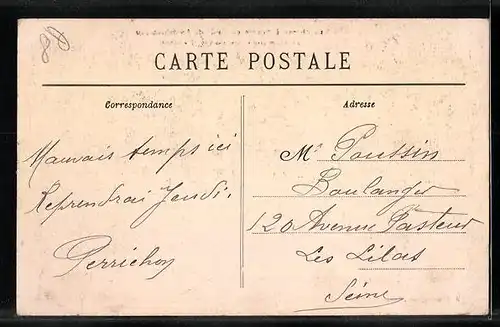 CARTE POSTALE
Correspondance
Adresse
Mauvais temps ici
Reprendrai Jeudi.
Perrichon
Mr Poussin
Boulanger
120 Avenue Pasteur
Les Lilas
Seine